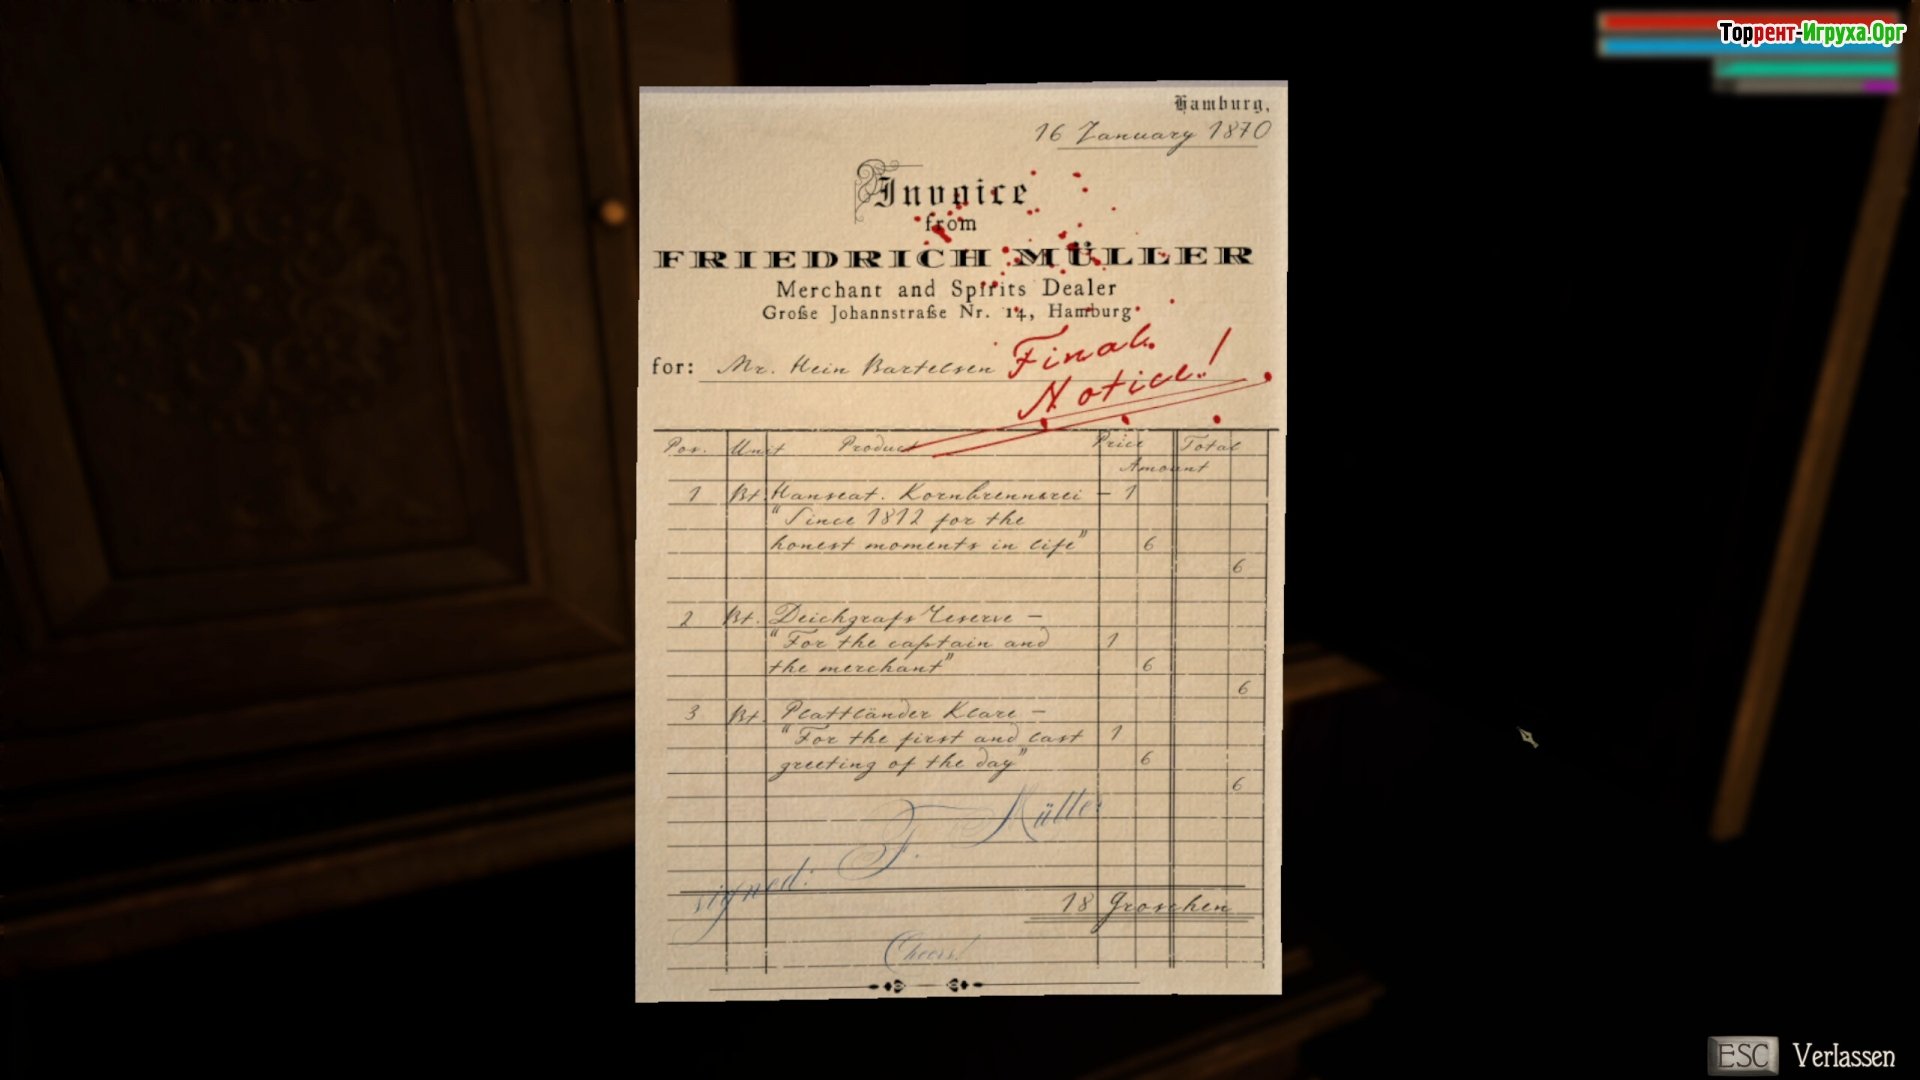 Торрент-Игруха.Орг
Hamburg,
16 January 1870
Invoice
from
FRIEDRICH MÜLLER
Merchant and Spirits Dealer
Große Johannstraße Nr. 14, Hamburg
for: Mr. Hein Bartelsen
Final
Notice!
Pos. Unit Product Price Total
Amount
1 Bt. Hanseat. Kornbrennerei - 1
"Since 1812 for the
honest moments in life" 6
6
2 Bt. Deichgrafs Reserve -
"For the captain and 1
the merchant" 6
6
3 Bt. Plattländer Klare -
"For the first and last 1
greeting of the day" 6
6
signed: F. Müller
18 Groschen
Cheers!
ESC Verlassen